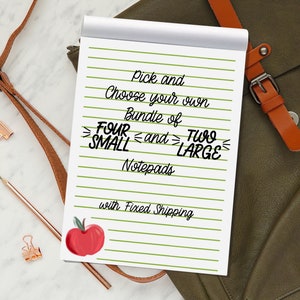 Pick and
Choose your own
Bundle of
FOUR SMALL and TWO LARGE
Notepads
with Fixed Shipping